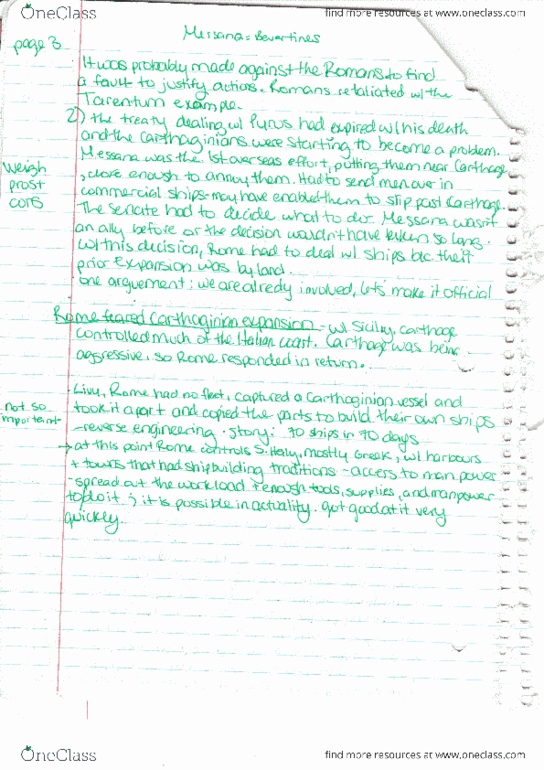 OneClass
find more resources at www.oneclass.com
Messana = Bevertines
page 3
It was probably made against the Romans to find
a fault to justify actions. Romans retaliated w/ the
Tarentum example.
2) the treaty dealing w/ Pyrus had expired w/ his death
and the Carthaginians were starting to become a problem.
Messana was the 1st overseas effort, putting them near Carthage
, close enough to annoy them. Had to send men over in
weigh
prost
cons
commercial ships - may have enabled them to slip past Carthage.
The senate had to decide what to do. Messana wasn't
an ally before or the decision wouldn't have taken so long.
w/ this decision, Rome had to deal w/ ships b/c their
prior expansion was by land.
one arguement: we are already involved, let's make it official
Rome feared Carthaginian expansion - w/ Sicily, Carthage
controlled much of the Italian coast. Carthage was being
aggressive, so Rome responded in return.
not so
important
- Livy, Rome had no fleet, captured a Carthaginian vessel and
took it apart and copied the parts to build their own ships
- reverse engineering · story: 70 ships in 90 days
→ at this point Rome controls S. Italy, mostly Greek, w/ harbours
+ towns that had shipbuilding traditions - access to man power
- spread out the workload + enough tools, supplies, and manpower
to do it; it is possible in actuality. got good at it very
quickly.
OneClass
find more resources at www.oneclass.com